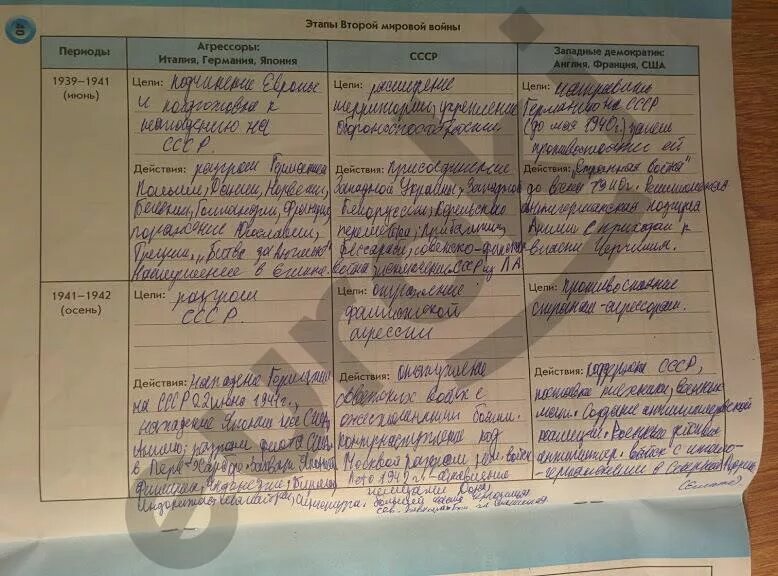 40
Этапы Второй мировой войны
Периоды
Агрессоры:
Италия, Германия, Япония
СССР
Западные демократии:
Англия, Франция, США
1939–1941
(июнь)
Цели: подчинение Европы
и подготовка к
нападению на
СССР.
Действия: разгром Германией
Польши, Дании, Норвегии,
Бельгии, Голландии, Франции,
Югославии,
Греции, „Битва за Англию"
в Египет
Цели: расширение
территории, укрепление
обороноспособности.
Действия: Присоединение
Западной Украины, Западной
Белоруссии, Карельского
перешейка, Прибалтики,
Бессарабии, советско-финская
война, исключение СССР из ЛН
Цели: направить
Германию на СССР
(до мая 1940г.) затем
противостояние ей
Действия: „Странная война"
до весны 1940г.
антигерманская позиция
Англии с приходом к
власти Черчилля.
1941–1942
(осень)
Цели: разгром
СССР.
Действия: нападение Германии
на СССР 22 июня 1941г.,
нападение Японии на США,
Англию; разгром флота США
в Перл-Харборе. Захват Японией
Филиппин, Индонезии, Бирмы,
Индокитая, Малайзии, Сингапура.
Цели: отражение
фашистской
агрессии
Действия: отступление
советских войск с
ожесточенными боями.
Контрнаступление под
Москвой, разгром нем. войск
Лето 1942г. -
Цели: Противостояние
странам-агрессорам.
Действия: поддержка СССР,
поставка техники, военных
Создание антигитлеровской
коалиции. Военные действия
войск с итало-
-германскими в Северной Африке
(Египте)